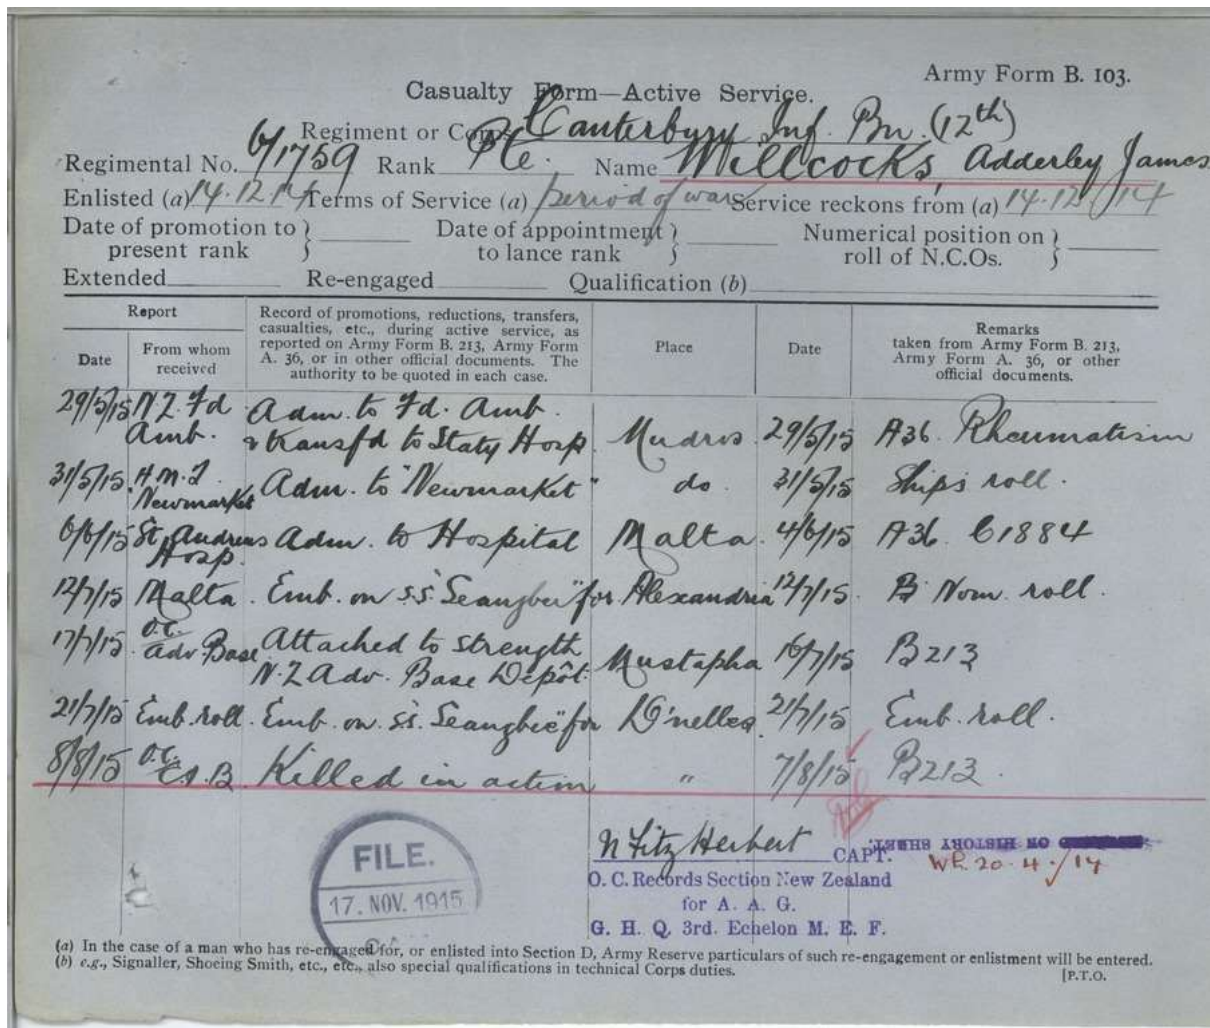 Army Form B. 103.
Casualty Form—Active Service.
Regiment or Corps Canterbury Inf. Bn. (12th)
Regimental No. 6/1759 Rank Pte. Name Willcocks, Adderley James
Enlisted (a) 14.12.14 Terms of Service (a) period of war Service reckons from (a) 14.12/14
Date of promotion to present rank } Date of appointment to lance rank } Numerical position on roll of N.C.Os. }
Extended Re-engaged Qualification (b)
Report
Date
From whom received
Record of promotions, reductions, transfers,
casualties, etc., during active service, as
reported on Army Form B. 213, Army Form
A. 36, or in other official documents. The
authority to be quoted in each case.
Place
Date
Remarks
taken from Army Form B. 213,
Army Form A. 36, or other
official documents.
29/5/15 N.Z. Fd Adm. to Fd. Amb.
Amb. & transf'd to Staty Hosp. Mudros 29/5/15 A36. Rheumatism
31/5/15 H.M.T. Newmarket Adm. to "Newmarket" do. 31/5/15 Ships roll.
6/6/15 St. Andrews Hosp. Adm. to Hospital Malta. 4/6/15 A36. C1884
12/7/15 Malta. Emb. on s.s. "Seangbee" for Alexandria 12/7/15. B. Nom. roll.
17/7/15 O.C. Adv. Base Attached to strength
N.Z Adv. Base Depôt. Mustapha 16/7/15 B213
21/7/15 Emb. roll. Emb. on s.s. "Seangbee" for D'nelles. 21/7/15 Emb. roll.
8/8/15 O.C. C.I.B Killed in action " 7/8/15 B213.
N FitzHerbert CAPT.
O. C. Records Section New Zealand
for A. A. G.
G. H. Q. 3rd. Echelon M. E. F.
ON HISTORY SHEET.
WR. 20.4./17
FILE.
17. NOV. 1915
(a) In the case of a man who has re-engaged for, or enlisted into Section D, Army Reserve particulars of such re-engagement or enlistment will be entered.
(b) e.g., Signaller, Shoeing Smith, etc., etc., also special qualifications in technical Corps duties.
[P.T.O.